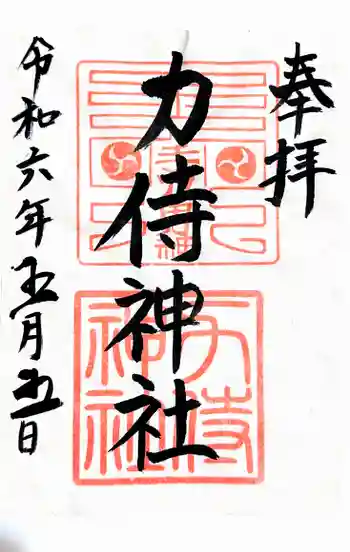 奉拝
力侍神社
令和六年五月五日
力侍
神社